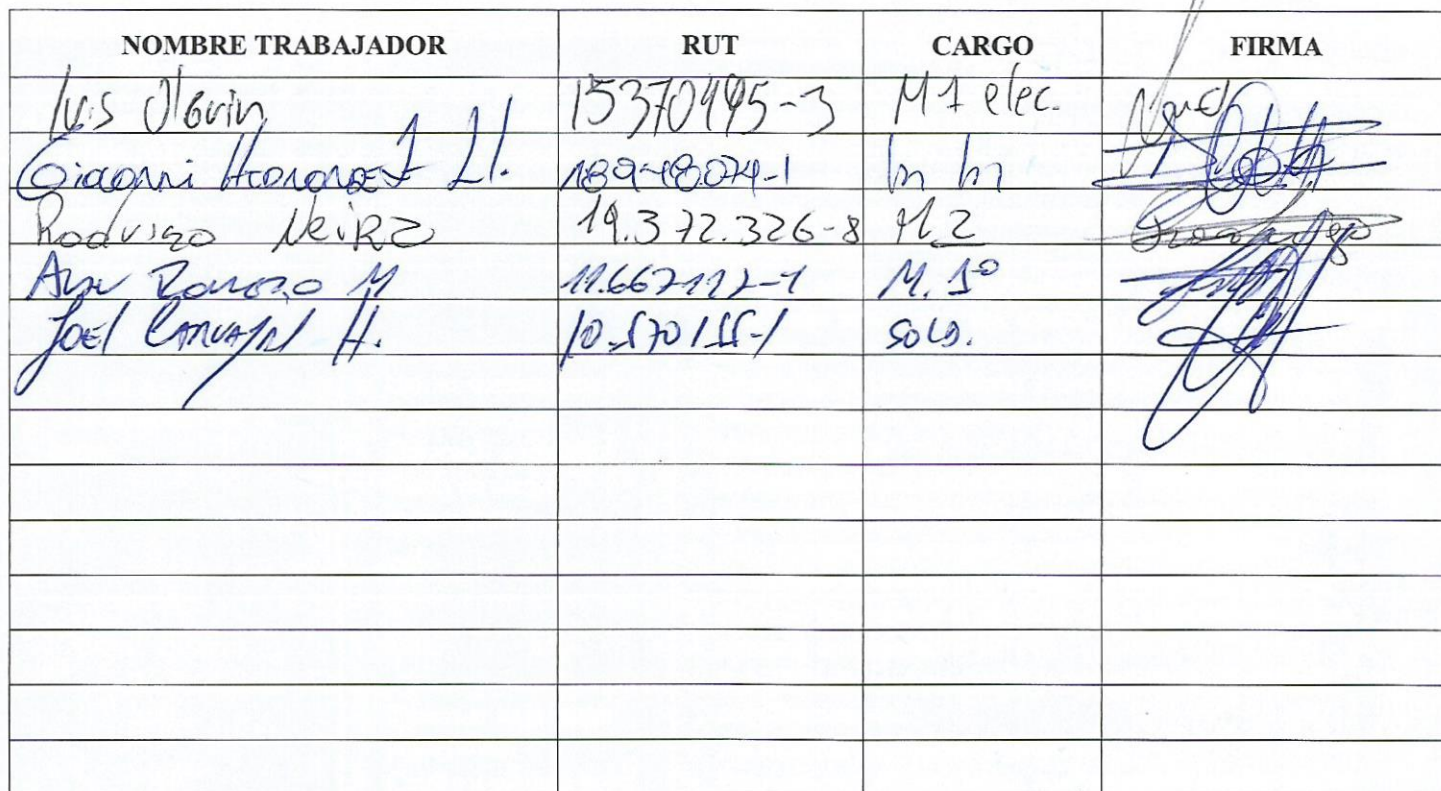 NOMBRE TRABAJADOR RUT CARGO FIRMA
Luis Olguin 15370195-3 M1 elec.
Giaganni Hernandez Ll. 189-18074-1 m m
Rodrigo Neira 19.372.326-8 M2
M 11.667112-1 M.1º
Joel Carvajal H. 10.570155-1 sold.